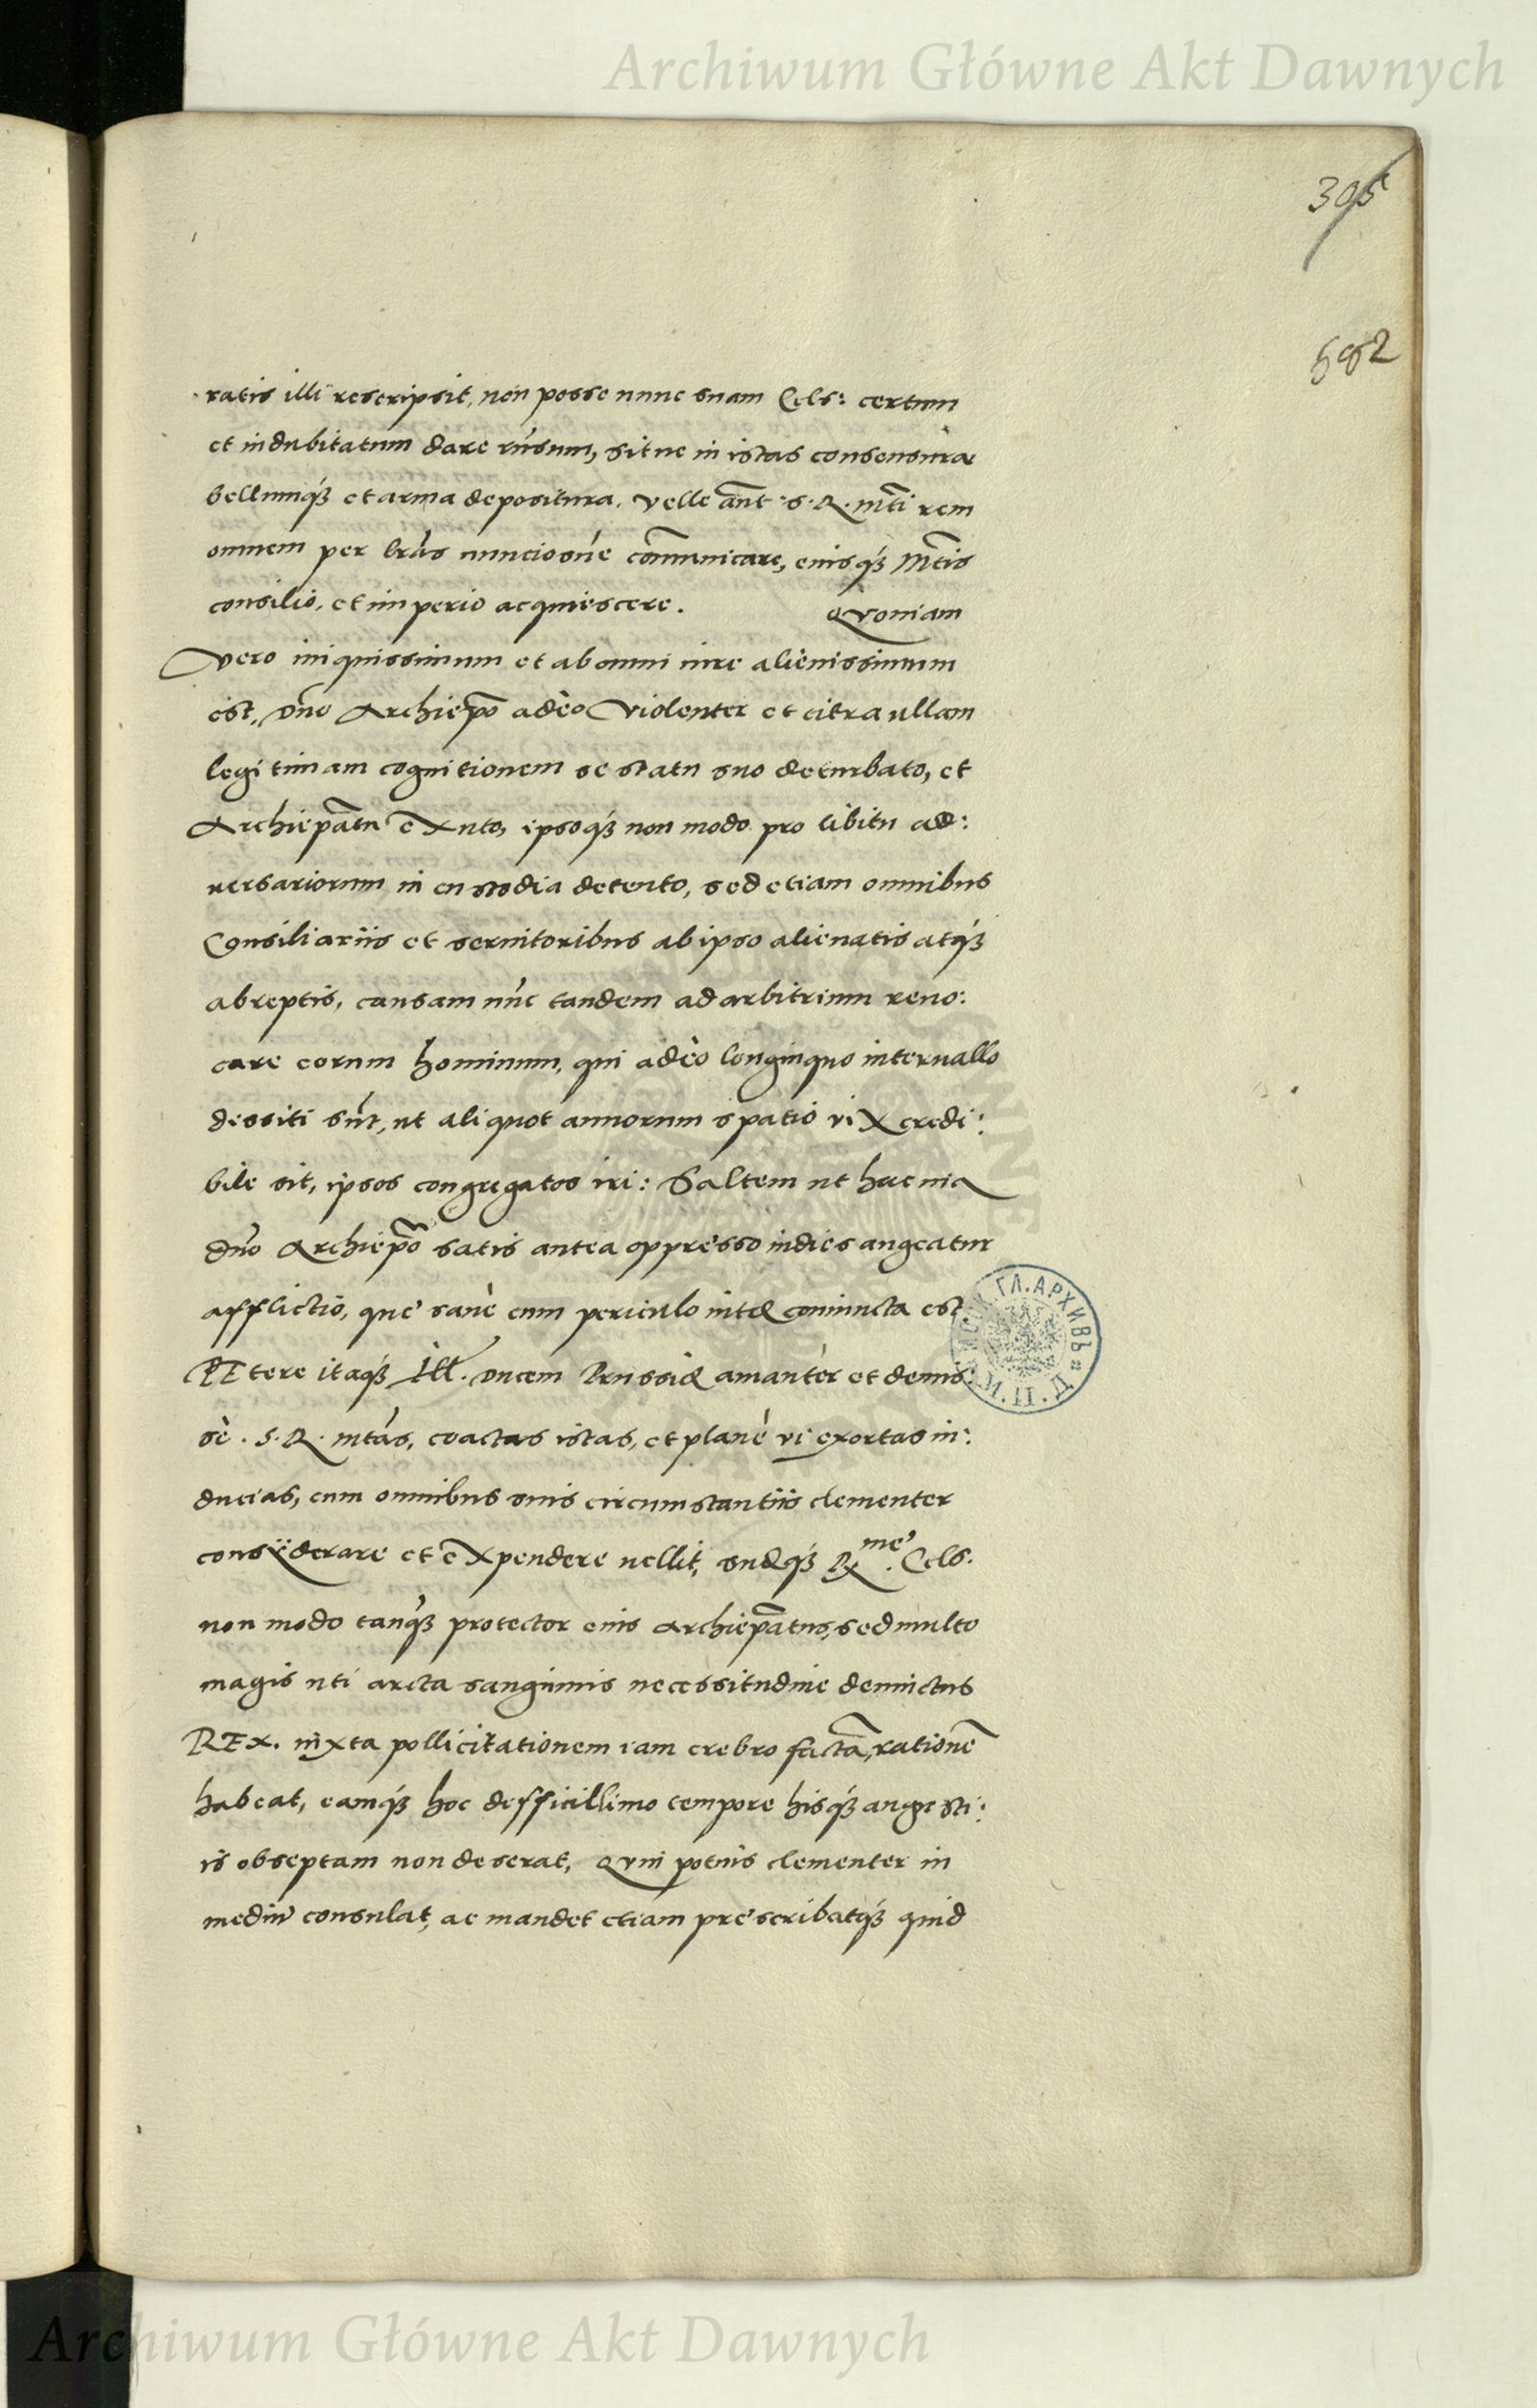 Archiwum Główne Akt Dawnych
305
ratis illi rescripsit, non posse nunc suam Cels: certum
et indubitatum dare rüsum, sitne in istas consensura
bellumq₃ et arma depositura. Velle aūt S. R. Mti rem
omnem per lras nunciosue cōmunicare, eiusq₃ Mtis
consilio, et imperio acquiescere. Quoniam
Vero iniquissimum et ab omni iure alienissimum
est, Dno Archiepo adeò Violenter et citra ullam
legitimam cognitionem se statu suo deturbato, et
Archiepatu exuto, ipsoq₃ non modo pro libitu ad:
uersariorum in custodia detento, sed etiam omnibus
Consiliariis et seruitoribus ab ipso alienatis atq₃
abreptis, causam nūc tandem ad arbitrium reuo:
care eorum hominum, qui adeò longinquo interuallo
dissiti sūt, ut aliquot annorum spatio vix credi:
bile sit, ipsos congregatos iri: Saltem ut hac uia
dno Archiepo satis antea oppresso indies augeatur
afflictio, quę sanè cum periculo uitę coniuncta est
PEtere itaq₃ Ill. Ducem Prussię amanter et demis:
sè S. R. Mtas, coactas istas, et planè vi extortas in:
ducias, cum omnibus suis circumstantiis clementer
considerare et expendere uellit, suęq₃ R.me Cels.
non modo tanq₃ protector eius Archiepatus, sed multo
magis uti arcta sanguinis necessitudine deuinctus
REx. iuxta pollicitationem iam crebro factā, rationē
habeat, eamq₃ hoc difficillimo tempore hisq₃ angusti:
is obseptam non deserat, Quin potius clementer in
mediū consulat, ac mandet etiam prescribatq₃ quid
ГЛ. АРХИВЪ
Archiwum Główne Akt Dawnych